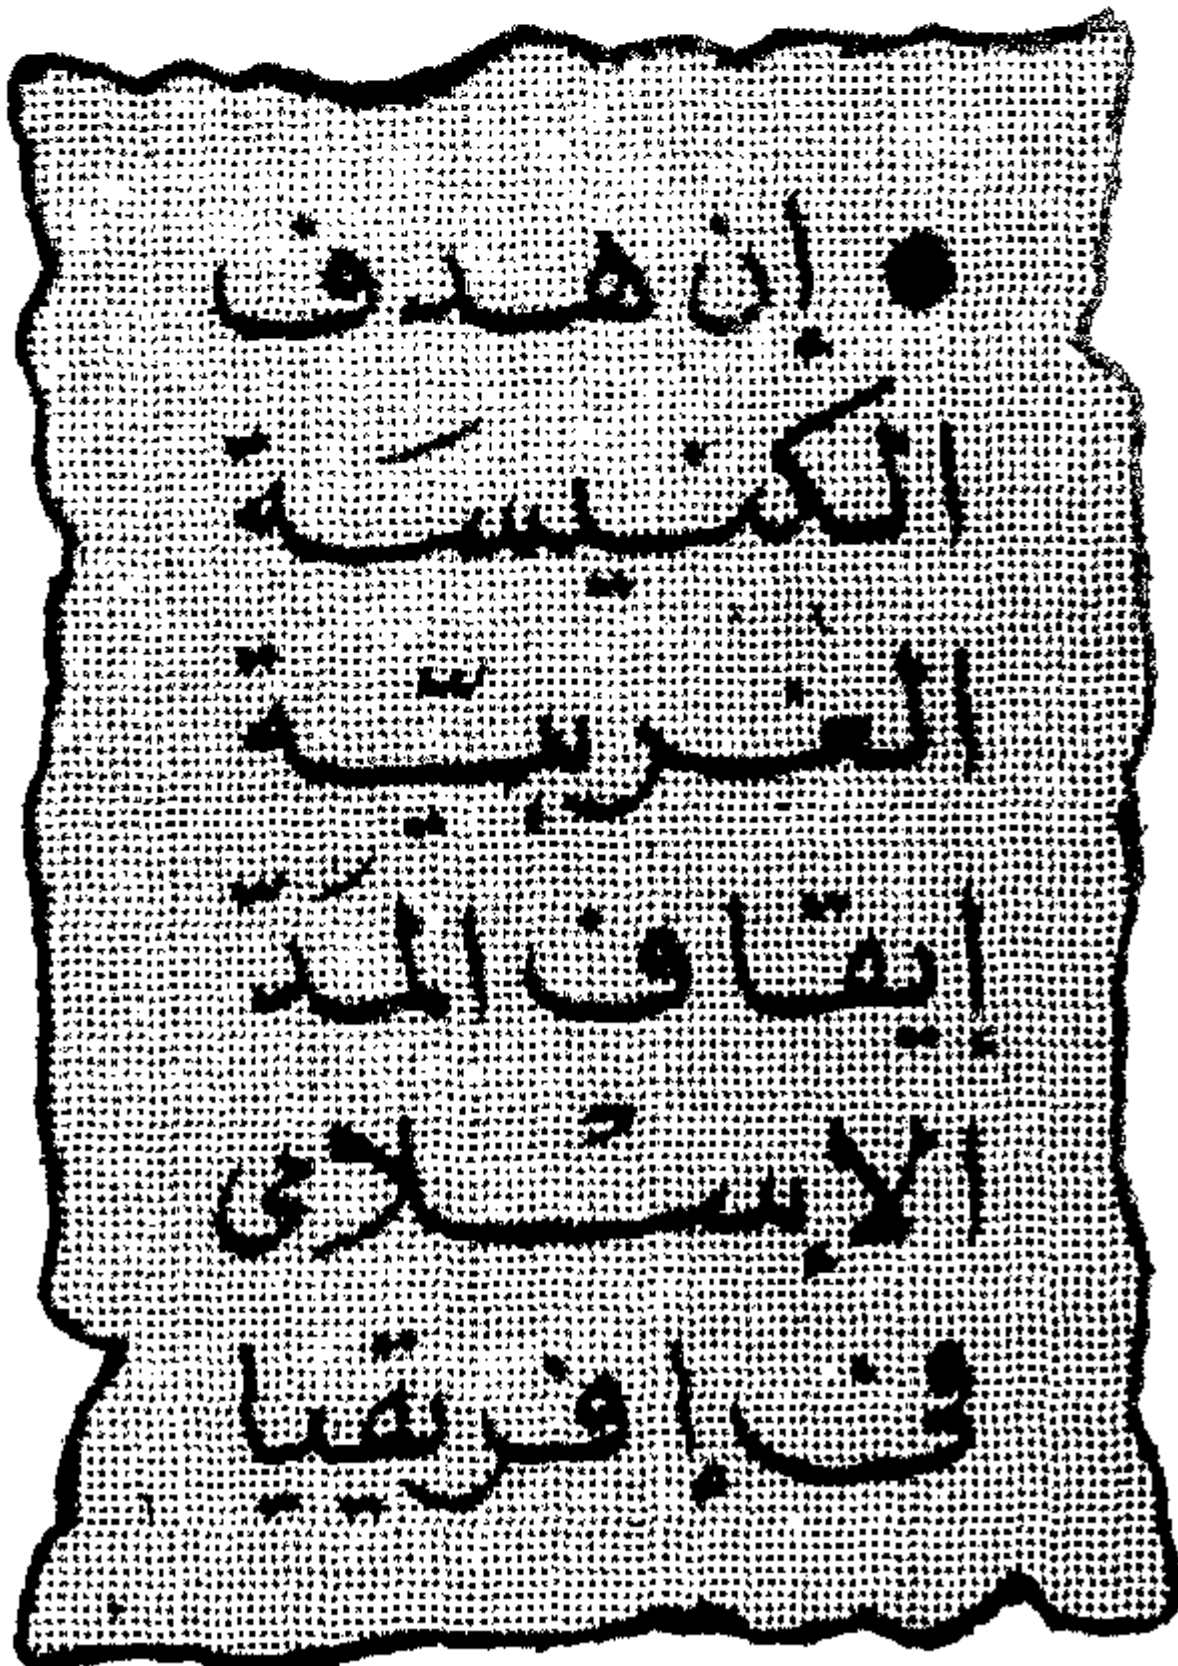 ● إن هدف
الكنيسة
الغربية
إيقاف المد
الإسلامى
فى إفريقيا